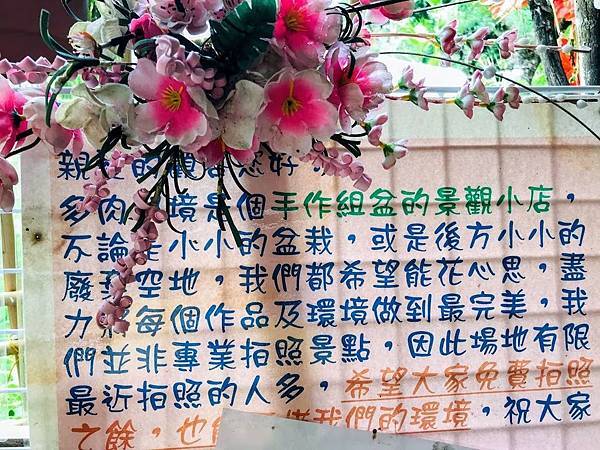 親 的觀 您好
多肉 境是個手作組盆的景觀小店，
不論是小小的盆栽，或是後方小小的
廢 空地，我們都希望能花心思，盡
力 每個作品及環境做到最完美，我
們並非專業拍照景點，因此場地有限
最近拍照的人多，希望大家免費拍照
之餘，也 我們的環境，祝大家